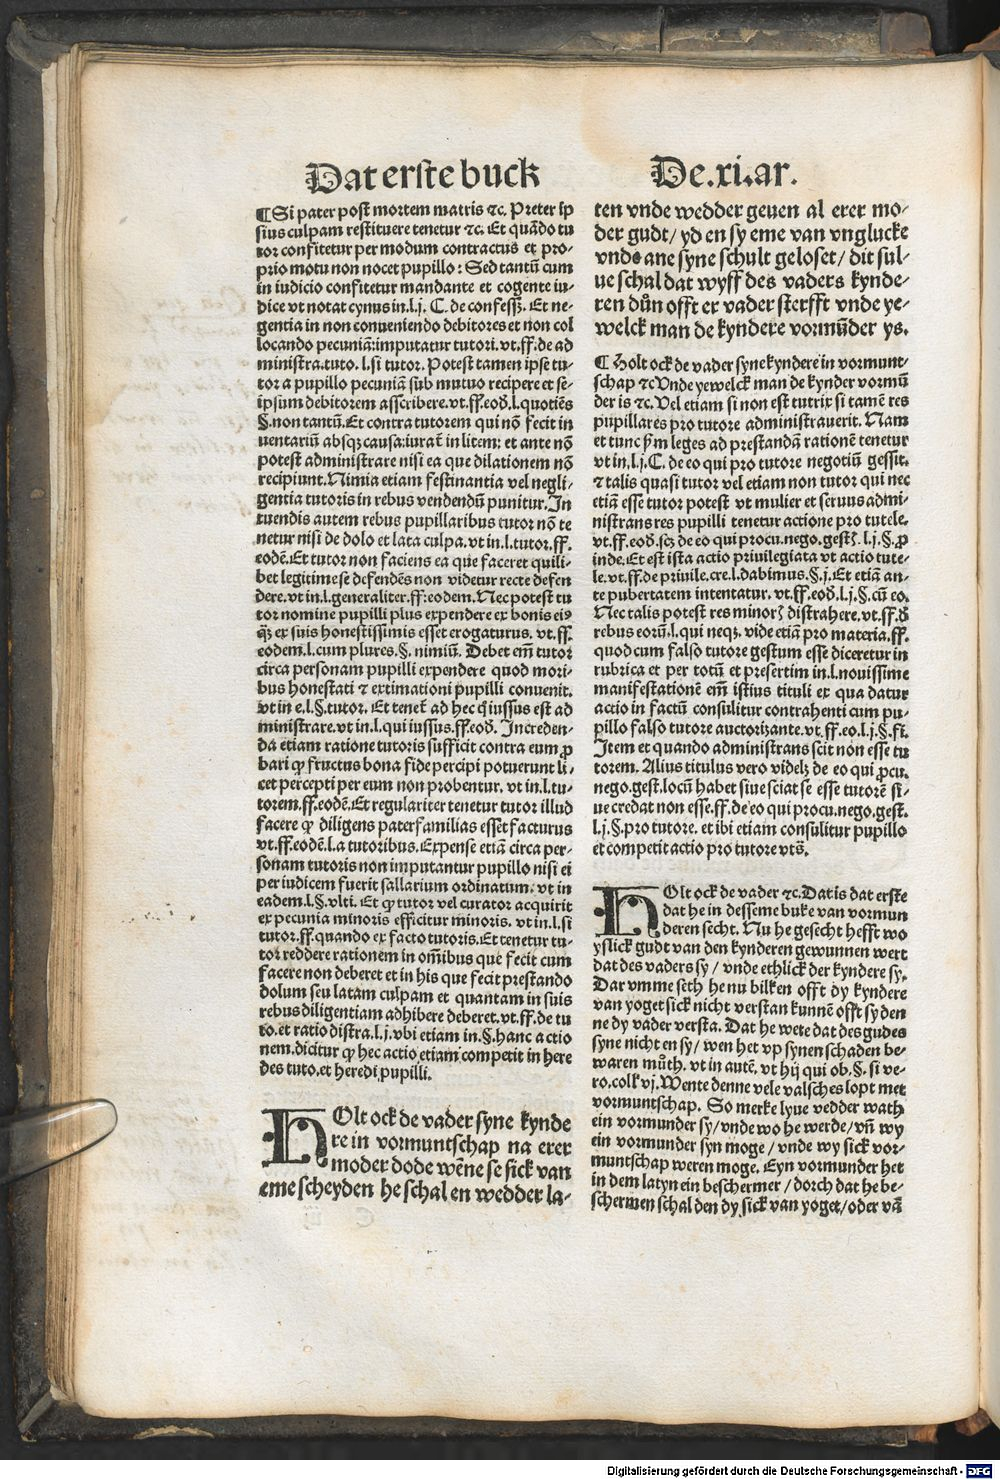 Dat erste buck
De.xi.ar.
¶Si pater post mortem matris ⁊c. Preter ip
sius culpam restituere tenetur ⁊c. Et quãdo tu
tor confitetur per modum contractus et pro⸗
prio motu non nocet pupillo: Sed tantũ cum
in iudicio confitetur mandante et cogente iu⸗
dice vt notat cynus in.l.j. C. de confessꝫ. Et ne⸗
gentia in non conueniendo debitores et non col
locando pecuniã:imputatur tutori.vt.ff.de ad
ministra.tuto.l.si tutor. Potest tamen ipse tu⸗
tor a pupillo pecuniã sub mutuo recipere et se⸗
ipsum debitorem asscribere.vt.ff.eoð.l.quotiẽs
§.non tantũ.Et contra tutorem qui nõ fecit in
uentariũ absqꝫ causa:iurat̃ in litem: et ante nõ
potest administrare nisi ea que dilationem nõ
recipiunt.Nimia etiam festinantia vel negli⸗
gentia tutoris in rebus vendendũ punitur.In
tuendis autem rebus pupillaribus tutor nõ te
netur nisi de dolo et lata culpa.vt in.l.tutor.ff.
eodẽ.Et tutor non faciens ea que faceret quili⸗
bet legitime se defendẽs non videtur recte defen
dere.vt in.l.generaliter.ff.eodem.Nec potest tu
tor nomine pupilli plus expendere ex bonis eiꝰ
q̃ꝫ ex suis honestissimis esset erogaturus. vt.ff.
eodem.l.cum plures.§. nimiũ. Debet em̃ tutor
circa personam pupilli expendere quod mori⸗
bus honestati ⁊ extimationi pupilli conuenit.
vt in e.l.§.tutor. Et tenet̃ ad hec q̃ iussus est ad
ministrare.vt in.l.qui iussus.ff.eoð. Increden⸗
da etiam ratione tutoris sufficit contra eum ꝓ
bari ꝙ fructus bona fide percipi potuerunt li⸗
cet percepti per eum non probentur. vt in.l.tu⸗
torem.ff.eodẽ.Et regulariter tenetur tutor illud
facere ꝙ diligens paterfamilias esset facturus
vt.ff.eodẽ.l.a tutoribus.Expense etiã circa per⸗
sonam tutoris non imputantur pupillo nisi ei
per iudicem fuerit sallarium ordinatum. vt in
eadem.l.§.vlti. Et ꝙ tutor vel curator acquirit
ex pecunia minoris efficitur minoris. vt in.l.si
tutor.ff.quando ex facto tutoris.Et tenetur tu⸗
tor reddere rationem in om̃ibus que fecit cum
facere non deberet et in his que fecit prestando
dolum seu latam culpam et quantam in suis
rebus diligentiam adhibere deberet.vt.ff.de tu
to.et ratio distra.l.j.vbi etiam in.§.hanc actio
nem.dicitur ꝙ hec actio etiam competit in here
des tuto.et heredi pupilli.
HOlt ock de vader syne kynde
re in vormuntschap na erer
moder dode wẽne se sick van
eme scheyden he schal en wedder la⸗
ten vnde wedder geuen al erer mo⸗
der gudt/ yd en sy eme van vnglucke
vnde ane syne schult geloset/ dit sul⸗
ue schal dat wyff des vaders kynde⸗
ren důn offt er vader sterfft vnde ye⸗
welck man de kyndere vormũder ys.
¶ Holt ock de vader syne kyndere in vormunt⸗
schap ⁊c Vnde yewelck man de kynder vormũ
der is ⁊c. Vel etiam si non est tutrix si tamẽ res
pupillares pro tutore administrauerit. Nam
et tunc ẜm leges ad prestandã rationẽ tenetur
vt in.l.j.C. de eo qui pro tutore negotiũ gessit.
⁊ talis quasi tutor vel etiam non tutor qui nec
etiã esse tutor potest vt mulier et seruus admi⸗
nistrans res pupilli tenetur actione pro tutele.
vt.ff.eoð.sꝫ de eo qui procu.nego.gestꝫ.l.j.§.ꝓ
inde.Et est ista actio priuilegiata vt actio tute⸗
le.vt.ff.de priuile.cre.l.dabimus.§.j.Et etiã an⸗
te pubertatem intentatur. vt.ff.eoð.l.j.§.cũ eo.
Nec talis potest res minorꝝ distrahere.vt.ff.ð
rebus eorũ.l.qui neqꝫ. vide etiã pro materia.ff.
quod cum falso tutore gestum esse diceretur in
rubrica et per totũ et presertim in.l.nouissime
manifestationẽ em̃ istius tituli ex qua datur
actio in factũ consulitur contrahenti cum pu⸗
pillo falso tutore auctorizante.vt.ff.eo.l.j.§.fi.
Item et quando administrans scit non esse tu
torem. Alius titulus vero videlꝫ de eo qui ꝓcu.
nego.gest.locũ habet siue sciat se esse tutorẽ si⸗
ue credat non esse.ff.de eo qui procu.nego.gest.
l.j.§.pro tutore. et ibi etiam consulitur pupillo
et competit actio pro tutore vts̃.
HOlt ock de vader ⁊c.Dat is dat erste
dat he in desseme buke van vormun
deren secht. Nu he gesecht hefft wo
yslick gudt van den kynderen gewunnen wert
dat des vaders sy / vnde ethlick der kyndere sy.
Dar vmme seth he nu bilken offt dy kyndere
van yoget sick nicht verstan kunnẽ offt sy den
ne dy vader versta. Dat he wete dat des gudes
syne nicht en sy/ wen het vp synen schaden be⸗
waren můth. vt in autẽ. vt hij qui ob.§. si ve⸗
ro.coll' vj.Wente denne vele valsches lopt met
vormuntschap. So merke lyue vedder wath
ein vormunder sy/vnde wo he werde/vñ wy
ein vormunder syn moge / vnde wy sick vor⸗
muntschap weren moge. Eyn vormunder het
in dem latyn ein beschermer /dorch dat he be⸗
schermen schal den dy sick van yoget/oder vã
Digitalisierung gefördert durch die Deutsche Forschungsgemeinschaft - DFG